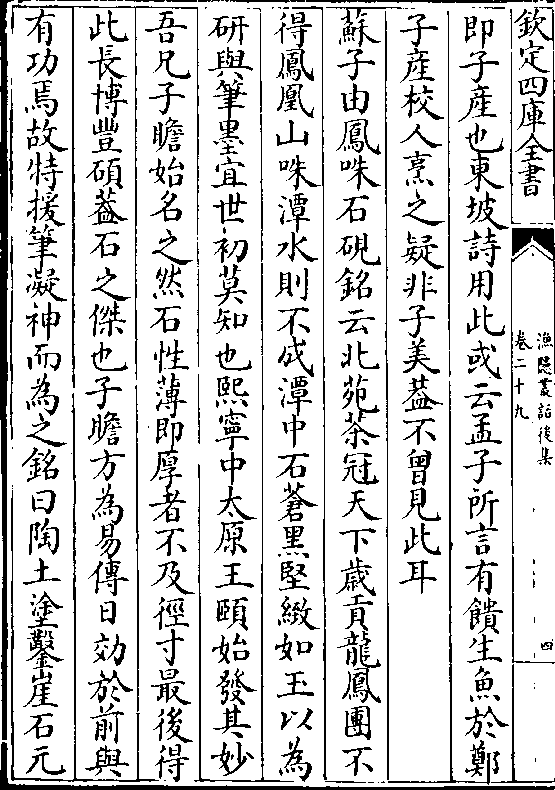 欽定四庫全書
漁隱叢話後集
卷二十九
四
即子產也東坡詩用此或云孟子所言有饋生魚於鄭
子產校人烹之疑非子美葢不曾見此耳
蘇子由鳳咮石硯銘云北苑茶冠天下歲貢龍鳳團不
得鳳凰山咮潭水則不成潭中石蒼黑堅緻如玉以為
研與筆墨宜世初莫知也熙寧中太原王頤始發其妙
吾兄子瞻始名之然石性薄即厚者不及徑寸最後得
此長博豐碩葢石之傑也子瞻方為易傳日效於前與
有功焉故特援筆凝神而為之銘曰陶土塗鑿崖石元